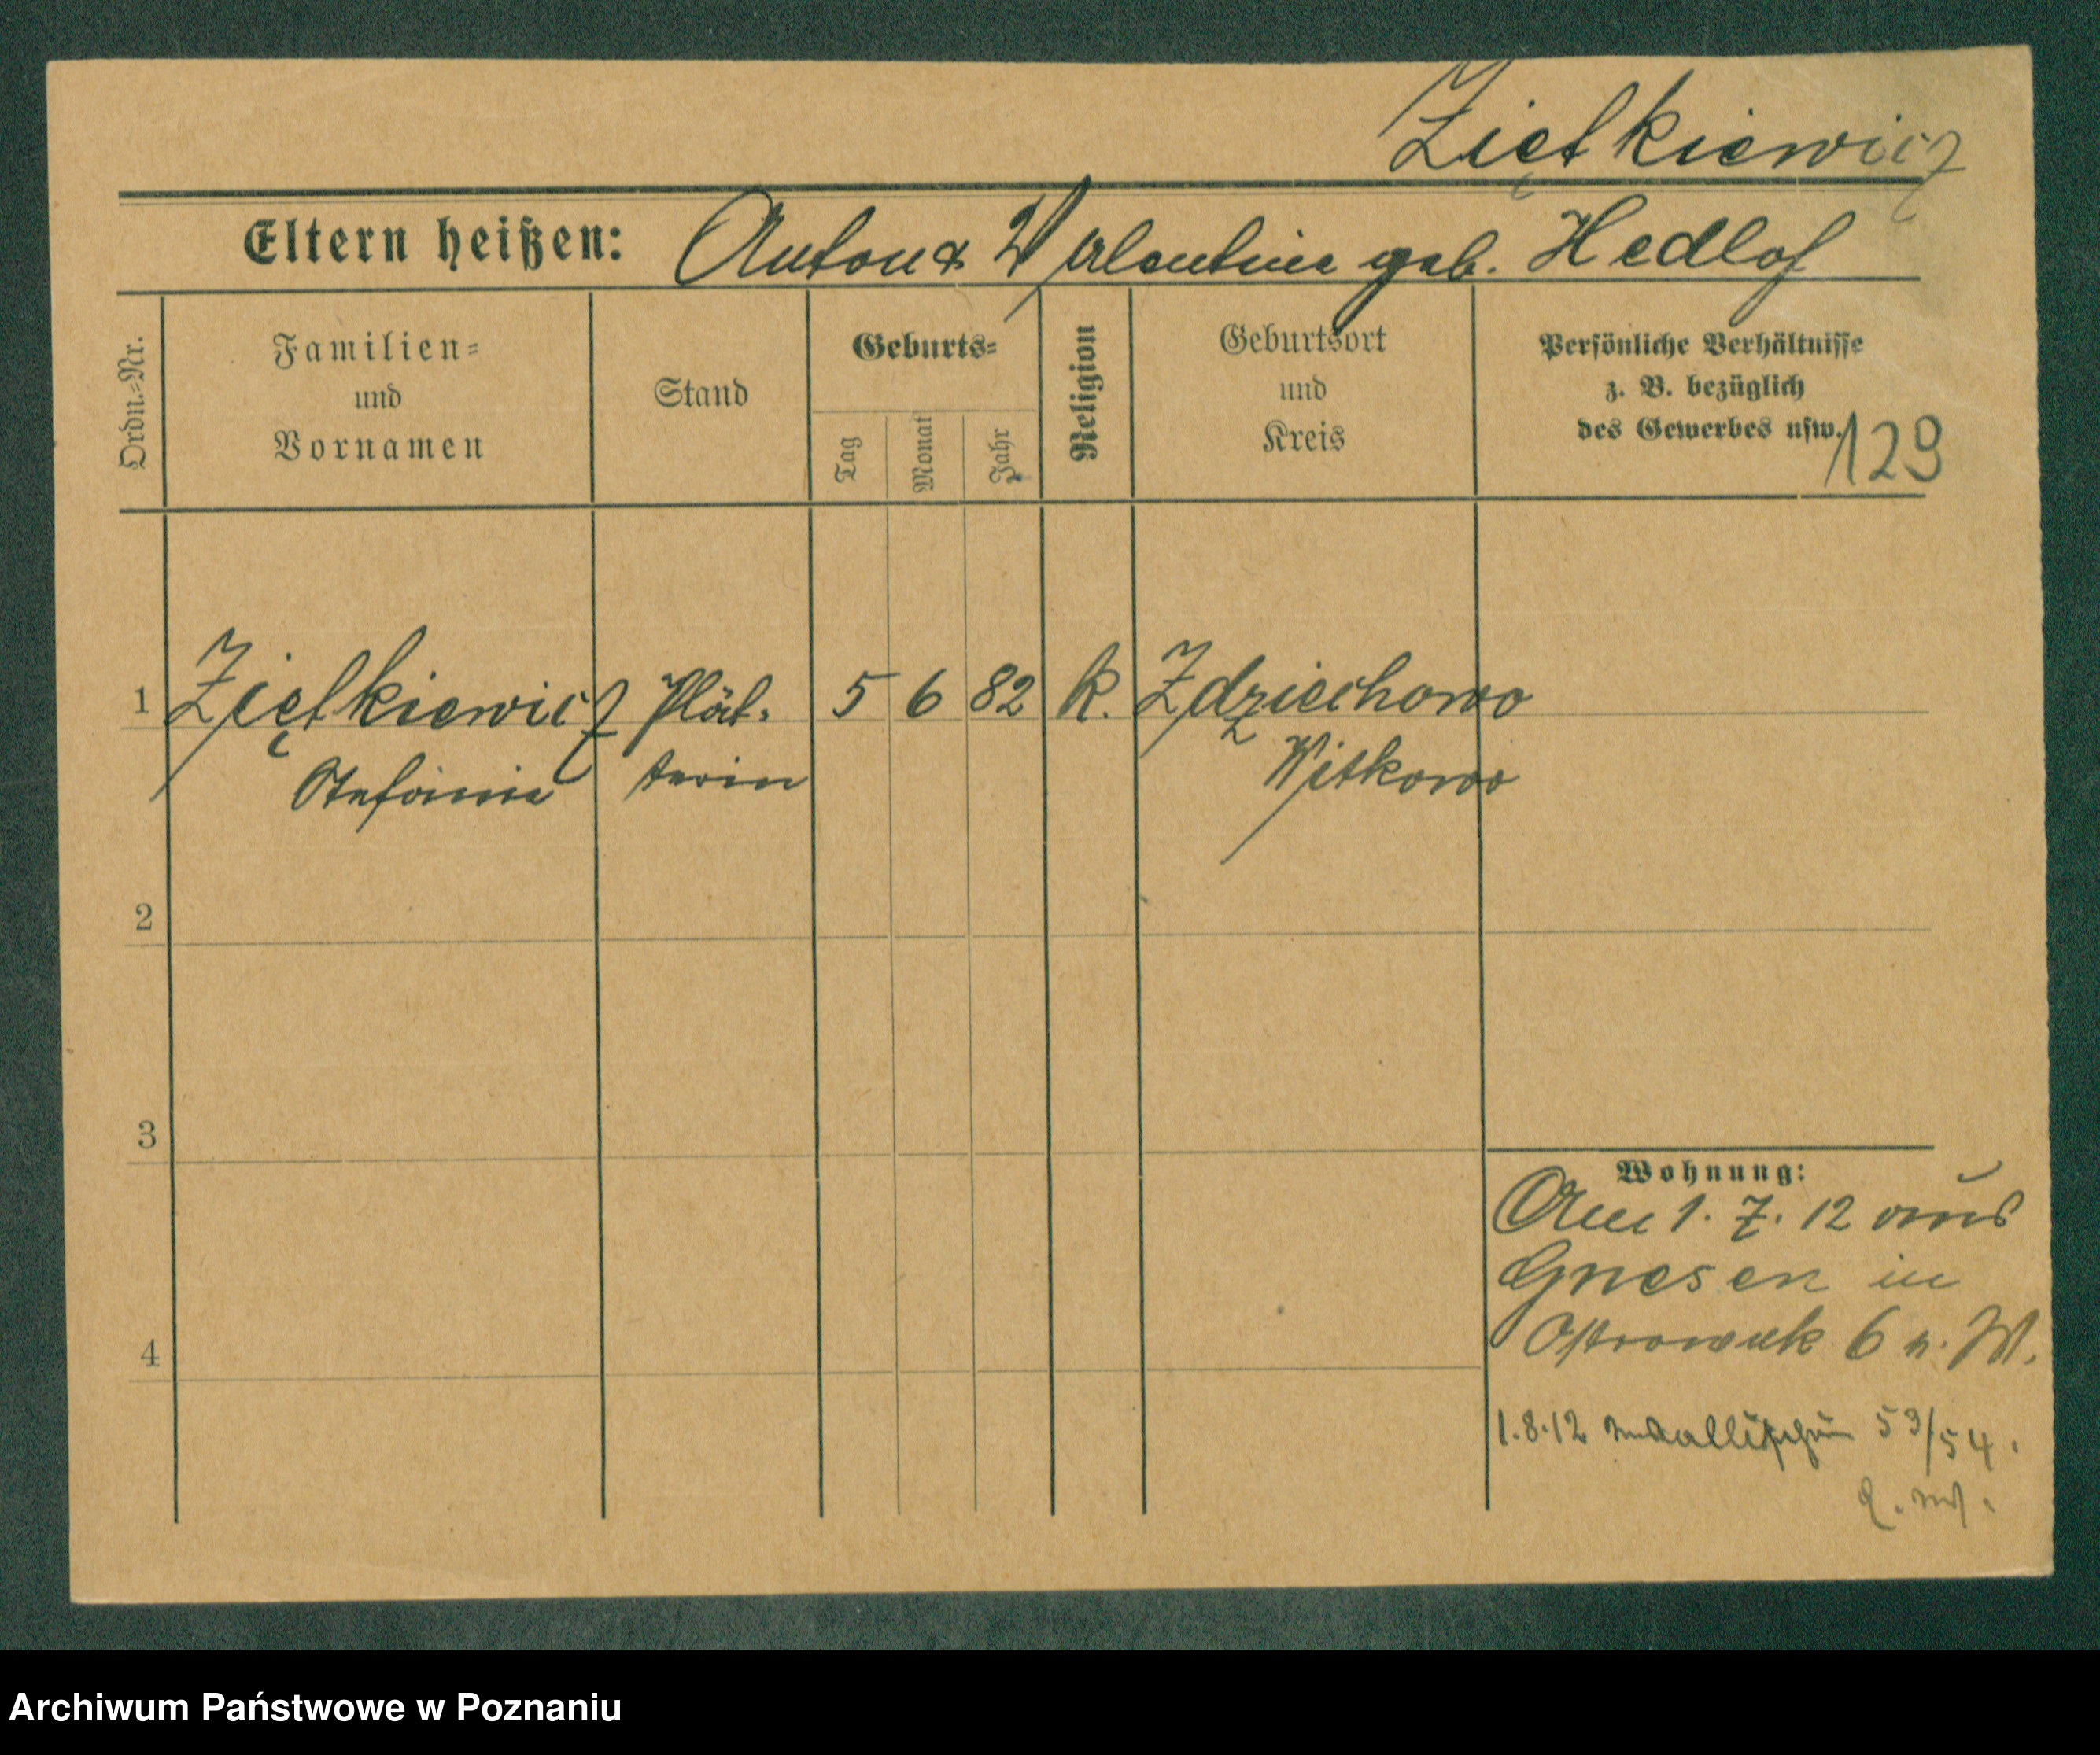 Ziętkiewicz
Eltern heißen: Anton & Valentine geb. Hedlof
Ordn.=Nr.
Familien=
und
Vornamen
Stand
Geburts=
Tag
Monat
Jahr
Religion
Geburtsort
und
Kreis
Persönliche Verhältnisse
z. B. bezüglich
des Gewerbes usw.
129
1 Ziętkiewicz Plät- 5 6 82 k. Zdziechowo
Stefania terin Witkowo
2
3
4
Wohnung:
Am 1. 7. 12 aus
Gnesen in
Ostrowek 6 b. W.
1.8.12 Wallischei 53/54.
Archiwum Państwowe w Poznaniu